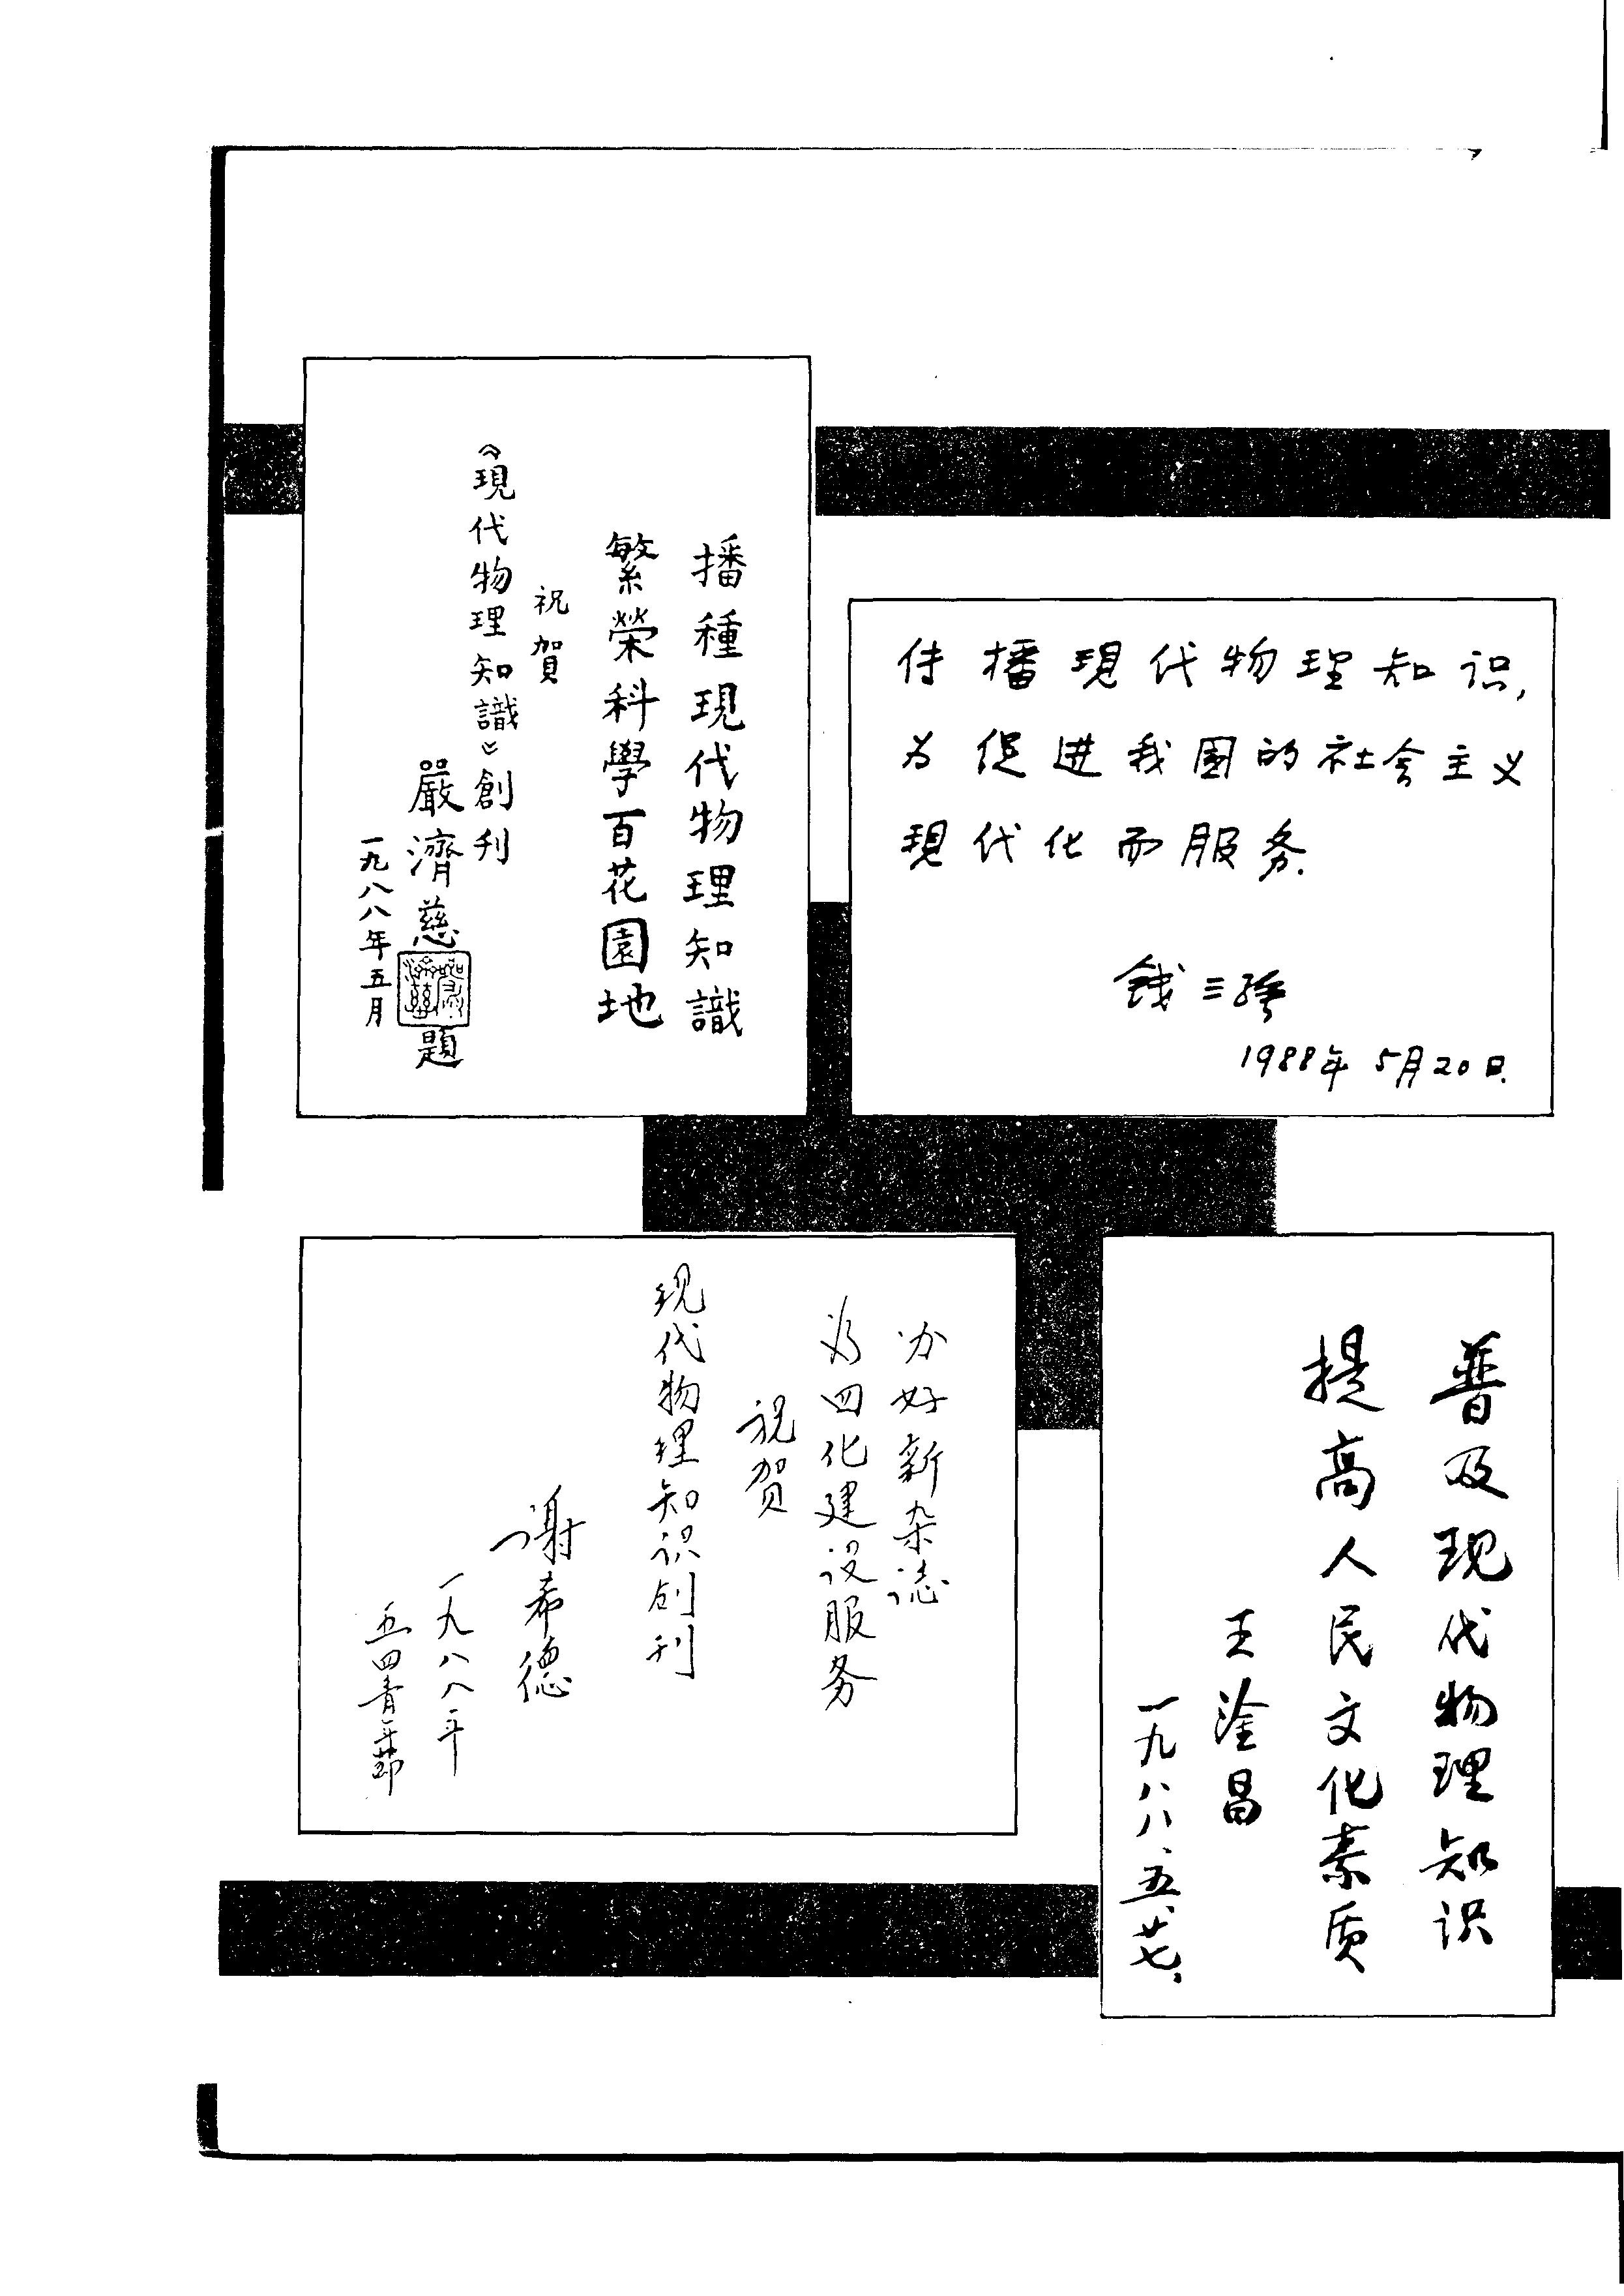 播種現代物理知識
繁榮科學百花園地
祝賀
《現代物理知識》創刊
嚴濟慈題
一九八八年五月
传播現代物理知识,
为促进我国的社会主义
現代化而服务.
钱三強
1988年5月20日.
办好新杂誌
为四化建设服务
祝贺
现代物理知识创刊
谢希德
一九八八年
五四青年节
普及现代物理知识
提高人民文化素质
王淦昌
一九八八、五、廿七、